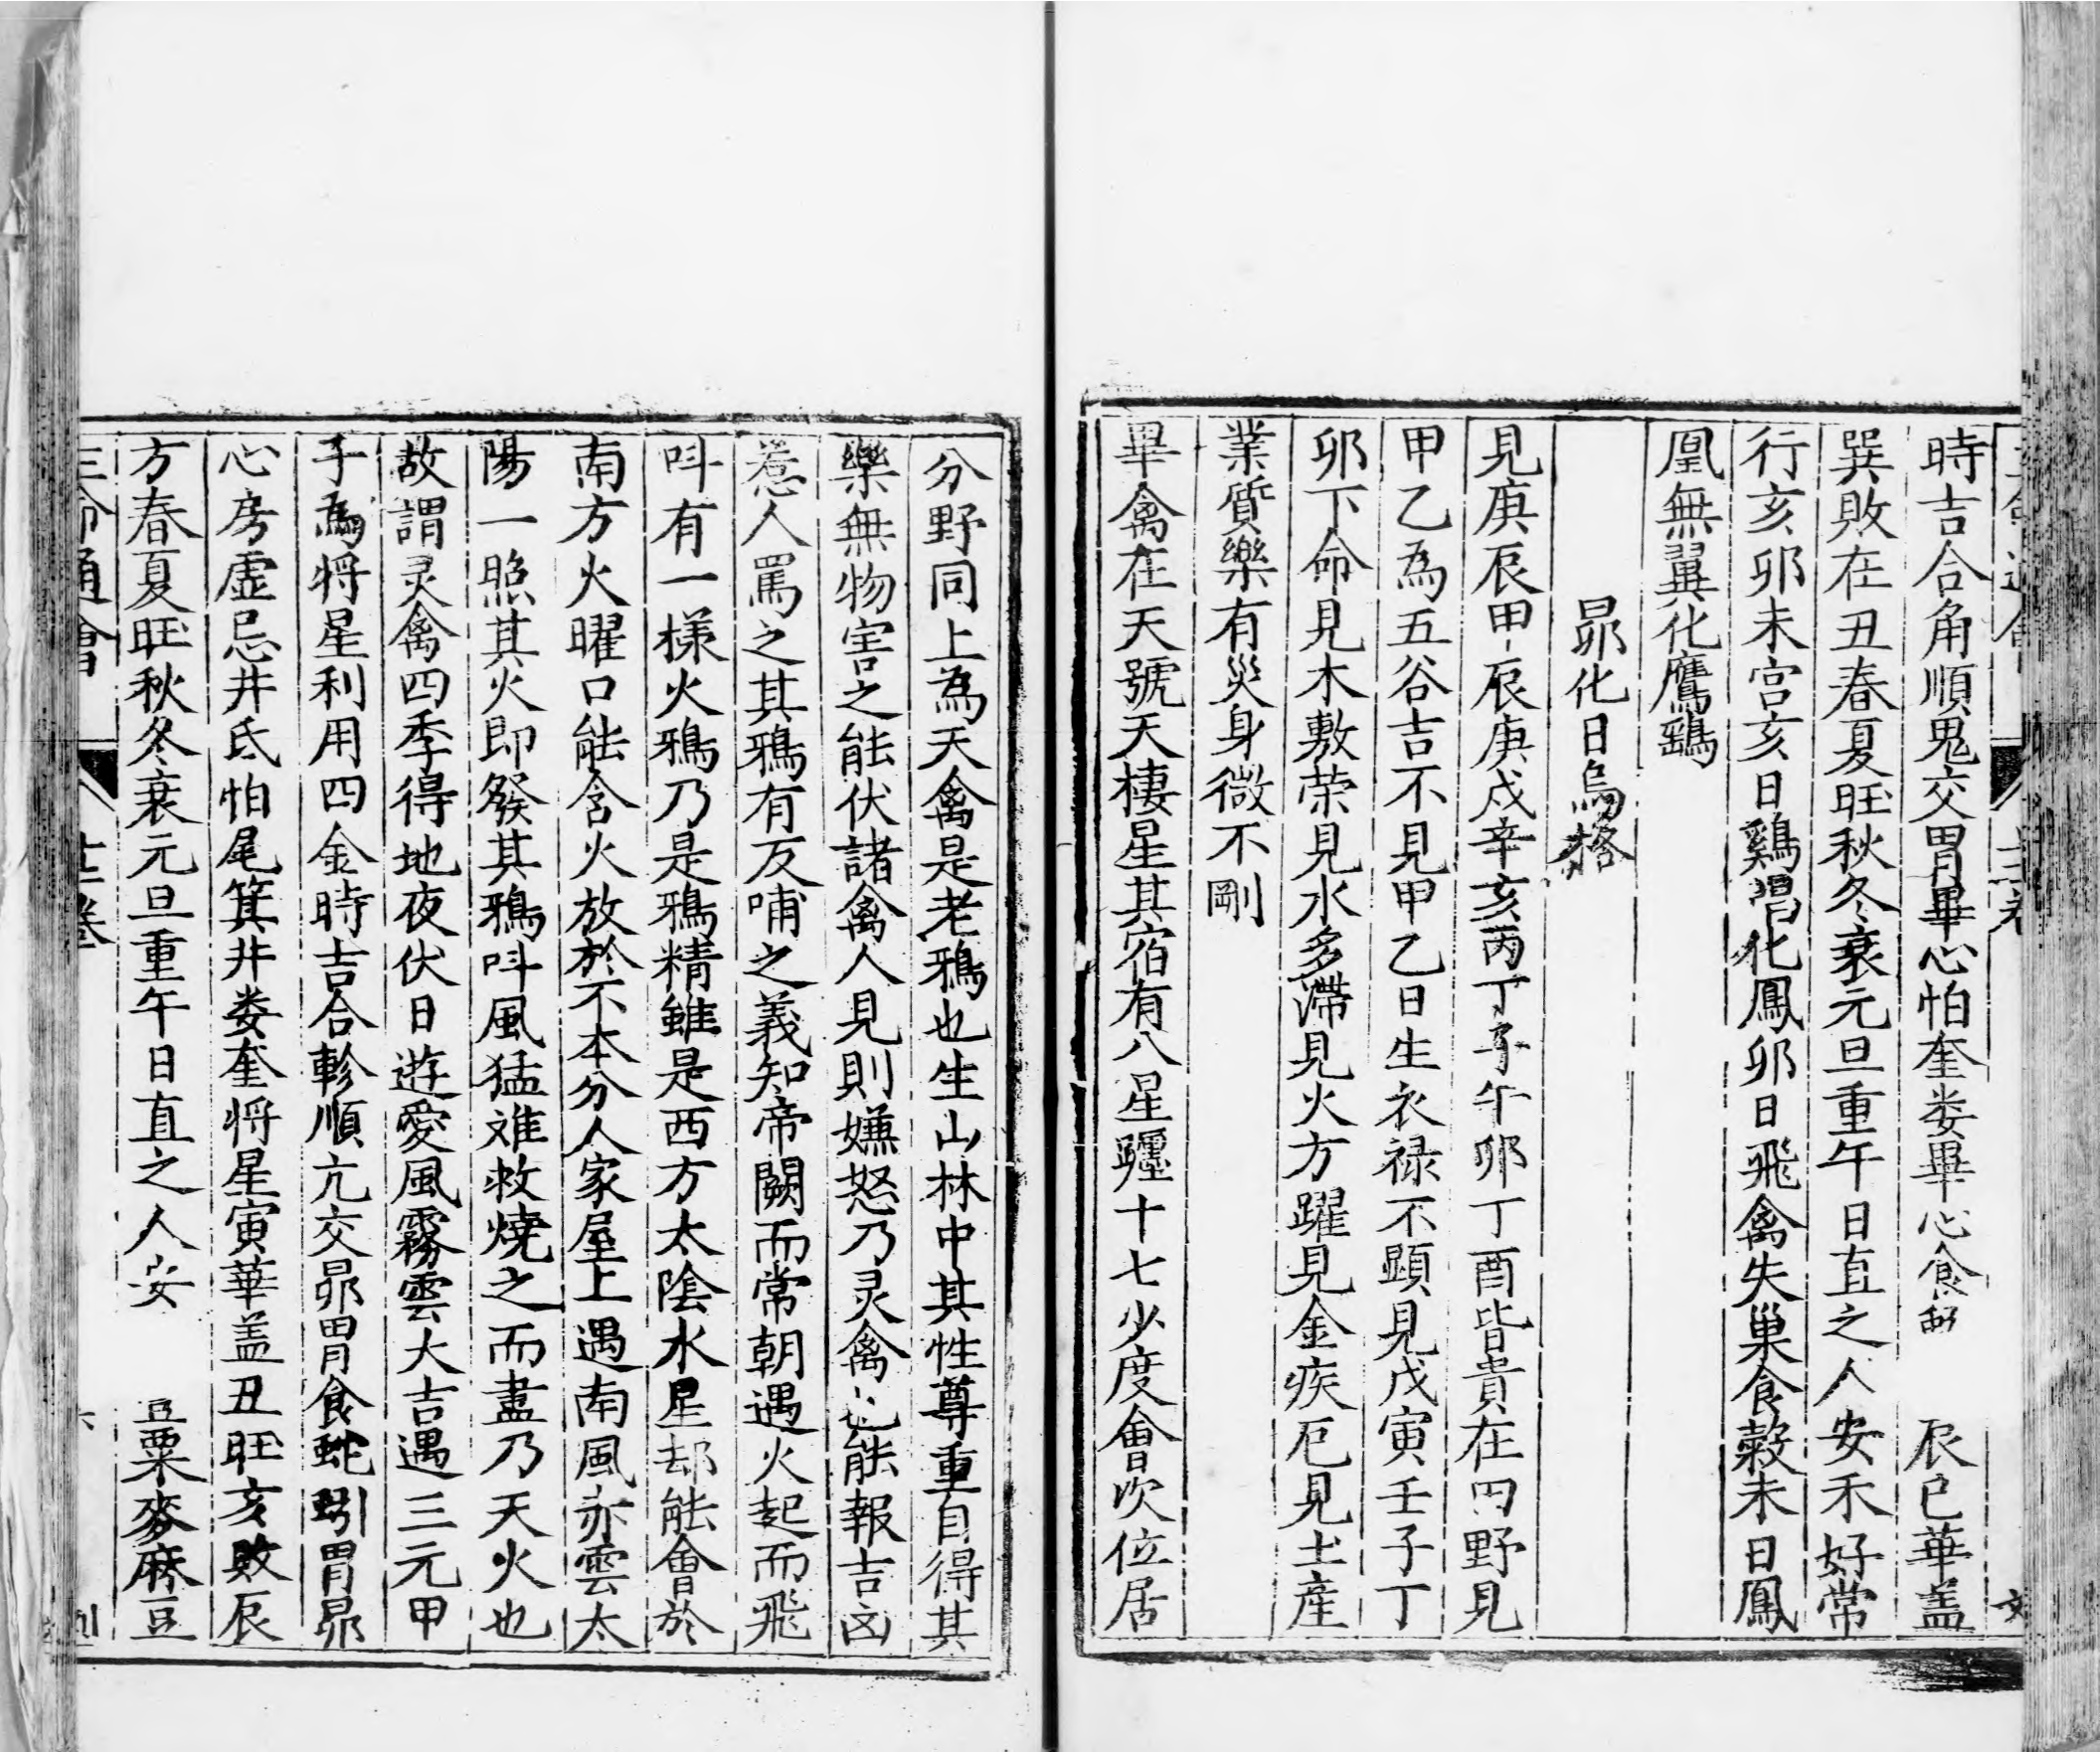 時吉合角順鬼交胃畢心怕奎娄畢心食 辰巳華盖
巽敗在丑春夏旺秋冬衰元旦重午日直之人安禾好常
行亥卯未宫亥日鷄唱化鳳卯日飛禽失巢食穀未日鳳
凰無翼化鷹鷂
昴化日烏格
見庚辰甲辰庚戍辛亥丙丁子午卯丁酉皆貴在四野見
甲乙為五谷吉不見甲乙日生衣禄不顕見戊寅壬子丁
卯下命見木敷荣見水多滯見火方躍見金疾厄見土産
業質樂有災身微不剛
畢禽在天號天棲星其宿有八星躔十七少度會次位居
分野同上為天禽是老鴉也生山林中其性尊重自得其
樂無物害之能伏諸禽人見則嫌怒乃灵禽也能報吉凶
惹人罵之其鴉有反哺之義知帝闕而常朝遇火起而飛
呌有一様火鴉乃是鴉精雖是西方太陰水星却能會於
南方火曜口能含火放於不本分人家屋上遇南風亦雲太
陽一照其火即發其鴉呌風猛难救燒之而盡乃天火也
故謂灵禽四季得地夜伏日遊愛風霧雲大吉遇三元甲
子為将星利用四金時吉合軫順亢交昴胃食蛇蚓胃昴
心房虚忌井氐怕尾箕井娄奎将星寅華盖丑旺亥敗辰
方春夏旺秋冬衰元旦重午日直之人安 豆粟麥麻豆
三命通會 十二卷 六